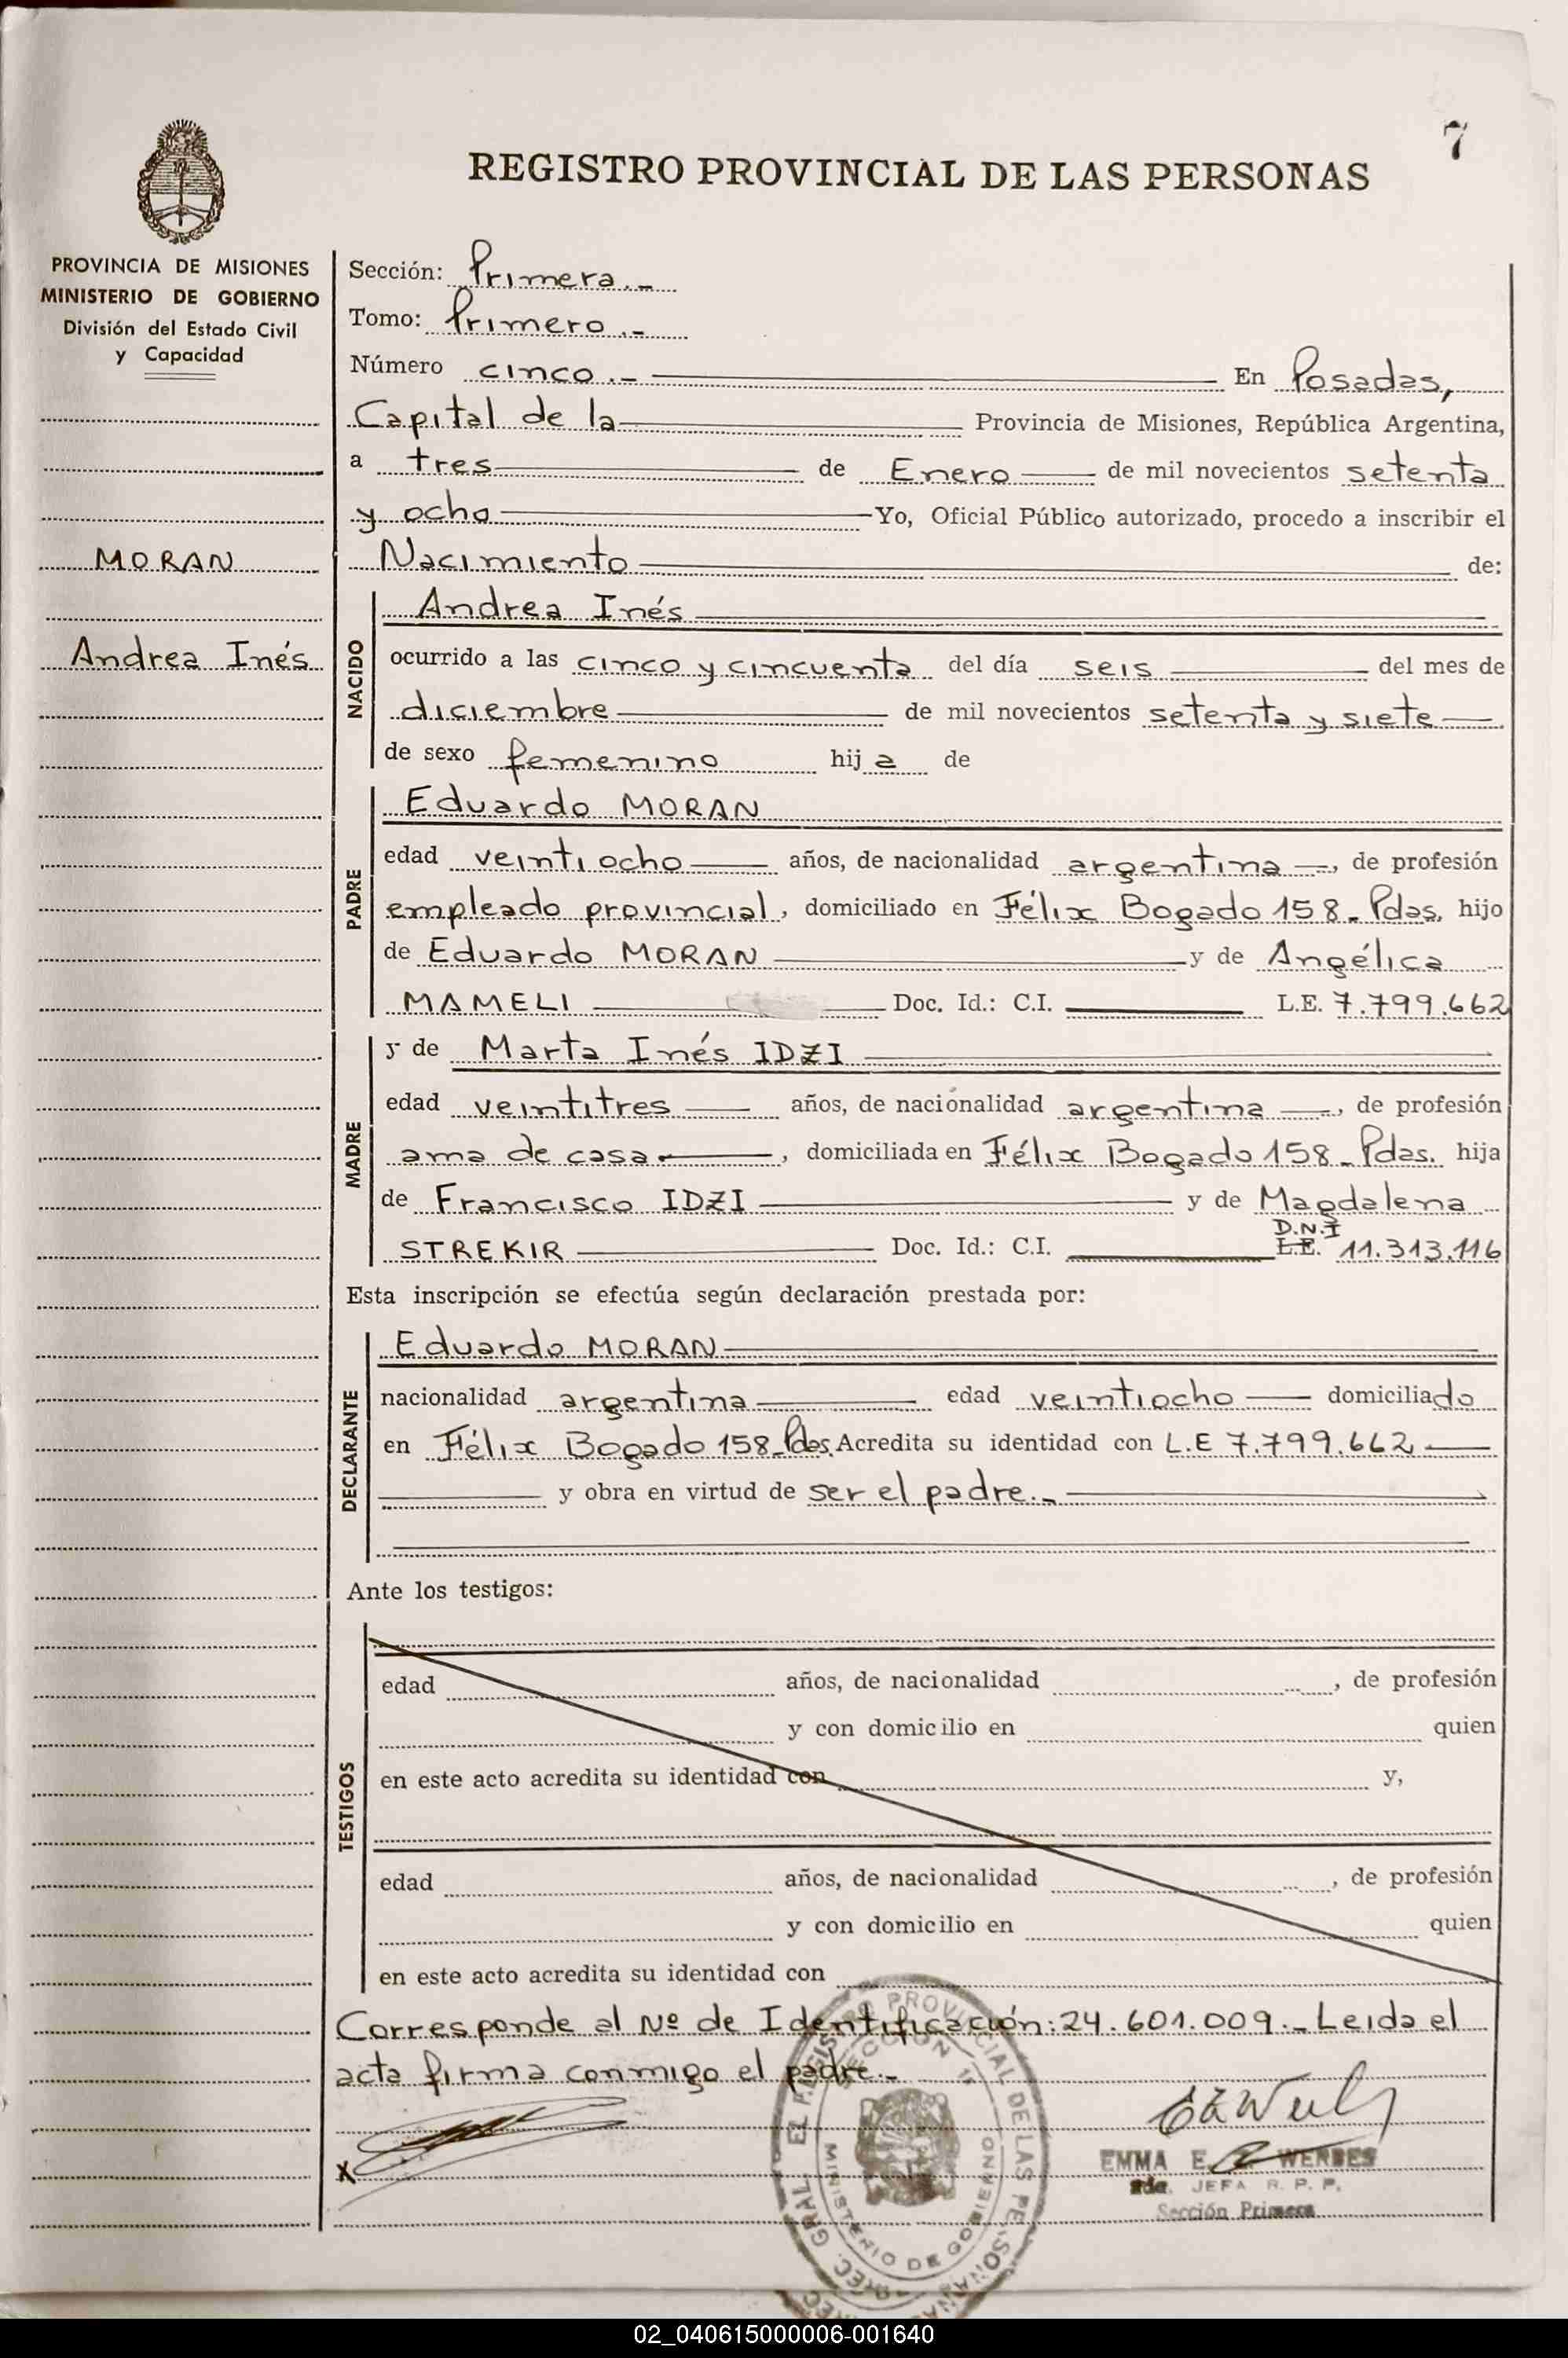 7
REGISTRO PROVINCIAL DE LAS PERSONAS
PROVINCIA DE MISIONES
MINISTERIO DE GOBIERNO
División del Estado Civil
y Capacidad
MORAN
Andrea Inés
Sección: Primera.-
Tomo: Primero.-
Número cinco.- En Posadas,
Capital de la Provincia de Misiones, República Argentina,
a tres de Enero de mil novecientos setenta
y ocho Yo, Oficial Público autorizado, procedo a inscribir el
Nacimiento de:
NACIDO
Andrea Inés
ocurrido a las cinco y cincuenta del día seis del mes de
diciembre de mil novecientos setenta y siete
de sexo femenino hija de
PADRE
Eduardo MORAN
edad veintiocho años, de nacionalidad argentina, de profesión
empleado provincial, domiciliado en Félix Bogado 158.- Pdas, hijo
de Eduardo MORAN y de Angélica
MAMELI Doc. Id.: C.I. L.E. 7.799.662
MADRE
y de Marta Inés IDZI
edad veintitres años, de nacionalidad argentina, de profesión
ama de casa, domiciliada en Félix Bogado 158- Pdas. hija
de Francisco IDZI y de Magdalena
D.N.I
STREKIR Doc. Id.: C.I. L.E. 11.313.116
Esta inscripción se efectúa según declaración prestada por:
DECLARANTE
Eduardo MORAN
nacionalidad argentina edad veintiocho domiciliado
en Félix Bogado 158-Pdas. Acredita su identidad con L.E 7.799.662
y obra en virtud de ser el padre.-
Ante los testigos:
TESTIGOS
edad años, de nacionalidad , de profesión
y con domicilio en quien
en este acto acredita su identidad con y,
edad años, de nacionalidad , de profesión
y con domicilio en quien
en este acto acredita su identidad con
Corresponde al Nº de Identificación: 24.601.009.- Leida el
acta firma conmigo el padre.-
X
MINISTERIO DE GOBIERNO
EMMA E. WENDES
2da. JEFA R. P. P.
Sección Primera
02_040615000006-001640